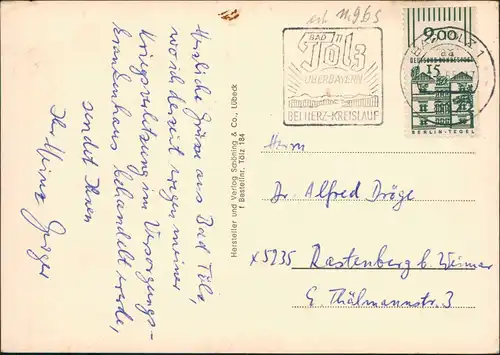 Herzliche Grüße aus Bad Tölz,
wo ich derzeit wegen meiner
Kriegsverletzung im Versorgungs-
krankenhaus behandelt werde,
sendet Ihnen
Ihr Heinz
Hersteller und Verlag Schöning & Co., Lübeck
Bestellnr. Tölz 184
11.9.65
BAD
Tölz
OBERBAYERN
BEI HERZ-KREISLAUF
2,00
BAD TÖLZ 1
DEUTSCHE BUNDESPOST
15
BERLIN-TEGEL
Herrn
Dr. Alfred Dröge
x5235 Rastenberg b. Weimar
E. Thälmannstr. 3